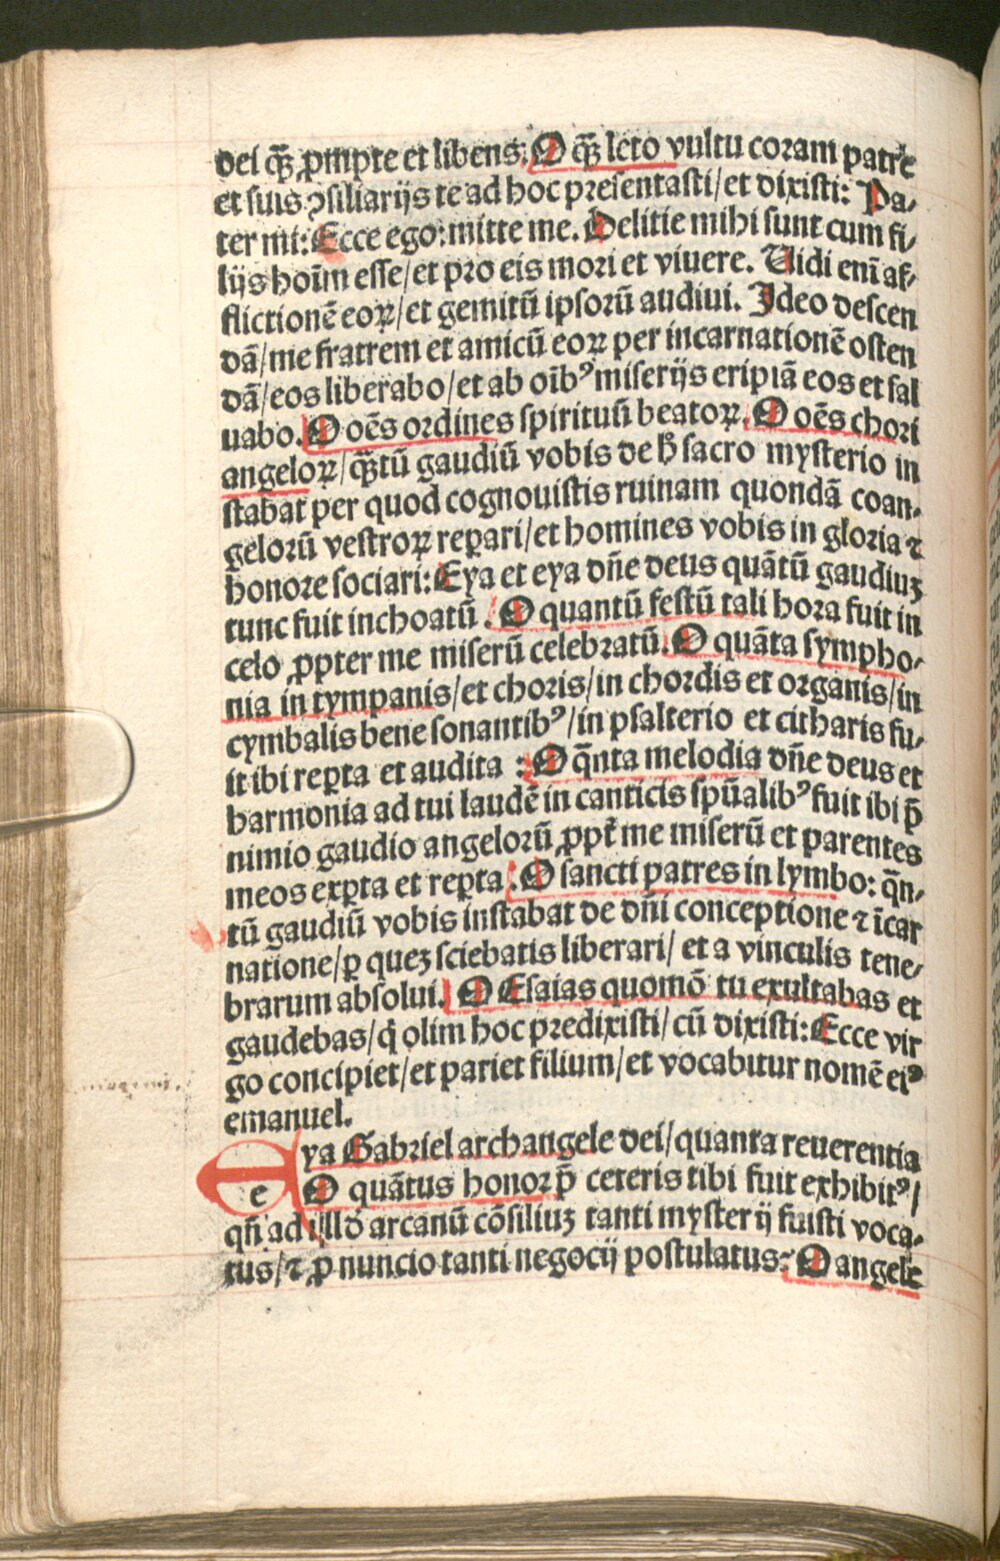 dei qꝫ̄ ꝓmpte et libens. O qꝫ̄ leto vultu coram patre
et suis ꝯsiliarijs te ad hoc presentasti/et dixisti: Pa-
ter mi: Ecce ego: mitte me. Delitie mihi sunt cum fi-
lijs hoīm esse/et pro eis mori et viuere. Uidi enī af-
flictionē eoꝝ/et gemitū ipsorū audiui. Ideo descen
dā/me fratrem et amicū eoꝝ per incarnationē osten
dā/eos liberabo/et ab oībꝰ miserijs eripiā eos et sal
uabo. O oēs ordines spirituū beatoꝝ. O oēs chori
angeloꝝ/qꝫ̄tū gaudiū vobis de h̄ sacro mysterio in
stabat per quod cognouistis ruinam quondā coan-
gelorū vestroꝝ reꝑari/et homines vobis in gloria ⁊
honore sociari: Eya et eya dn̄e deus quātū gaudiuꝫ
tunc fuit inchoatū. O quantū festū tali hora fuit in
celo ꝓpter me miserū celebratū. O quāta sympho-
nia in tympanis/et choris/in chordis et organis/in
cymbalis bene sonantibꝰ/in psalterio et citharis fu-
it ibi reꝑta et audita : O qn̄ta melodia dn̄e deus et
harmonia ad tui laudē in canticis spūalibꝰ fuit ibi p̄
nimio gaudio angelorū ꝓpt̄ me miserū et parentes
meos exꝑta et reꝑta: O sancti patres in lymbo: qn̄-
tū gaudiū vobis instabat de dn̄i conceptione ⁊ īcar
natione/ꝑ queꝫ sciebatis liberari/ et a vinculis tene-
brarum absolui. O Esaias quomō tu exultabas et
gaudebas/q̇ olim hoc predixisti/cū dixisti: Ecce vir
go concipiet/et pariet filium/et vocabitur nomē eiꝰ
emanuel.
Eya Gabriel archangele dei/quanta reuerentia
e O quātus honor p̄ ceteris tibi fuit exhibitꝰ/
qn̄ ad illd̄ arcanū cōsiliuꝫ tanti mysterij fuisti voca-
tus/⁊ ꝓ nuncio tanti negocij postulatus: O angele